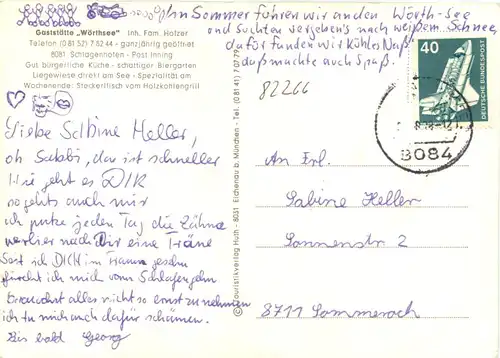 Im Sommer fuhren wir an den Wörth-See
und suchten vergebens nach weißem Schnee,
dafür fanden wir Kühles Naß,
daß machte auch Spaß.
Gaststätte „Wörthsee" Inh. Fam. Hofzer
Telefon (0 81 52) 7 82 44 - ganzjährig geöffnet
8081 Schlagenhofen - Post Inning
Gut bürgerliche Küche - schattiger Biergarten
Liegewiese direkt am See - Spezialität am
Wochenende: Steckerlfisch vom Holzkohlengrill
82266
40
DEUTSCHE BUNDESPOST
8084
Liebe Sabine Heller,
oh Sabbi, das ist schneller
Wie geht es DIR
so gehts auch mir
ich putze jeden Tag die Zähne
verlier nach Dir eine Träne
Sast ich DICH im Traum gesehn
fürcht ich mich vorm Schlafengehn
Brauchst alles nicht so ernst zu nehmen
ich tu mich auch dafür schämen.
Bis bald Georg
© Touristikverlag Huth - 8031 Eichenau b. München - Tel. (0 81 41) 7 07 79
An Frl.
Sabine Heller
Sonnenstr 2
8711 Sommerach